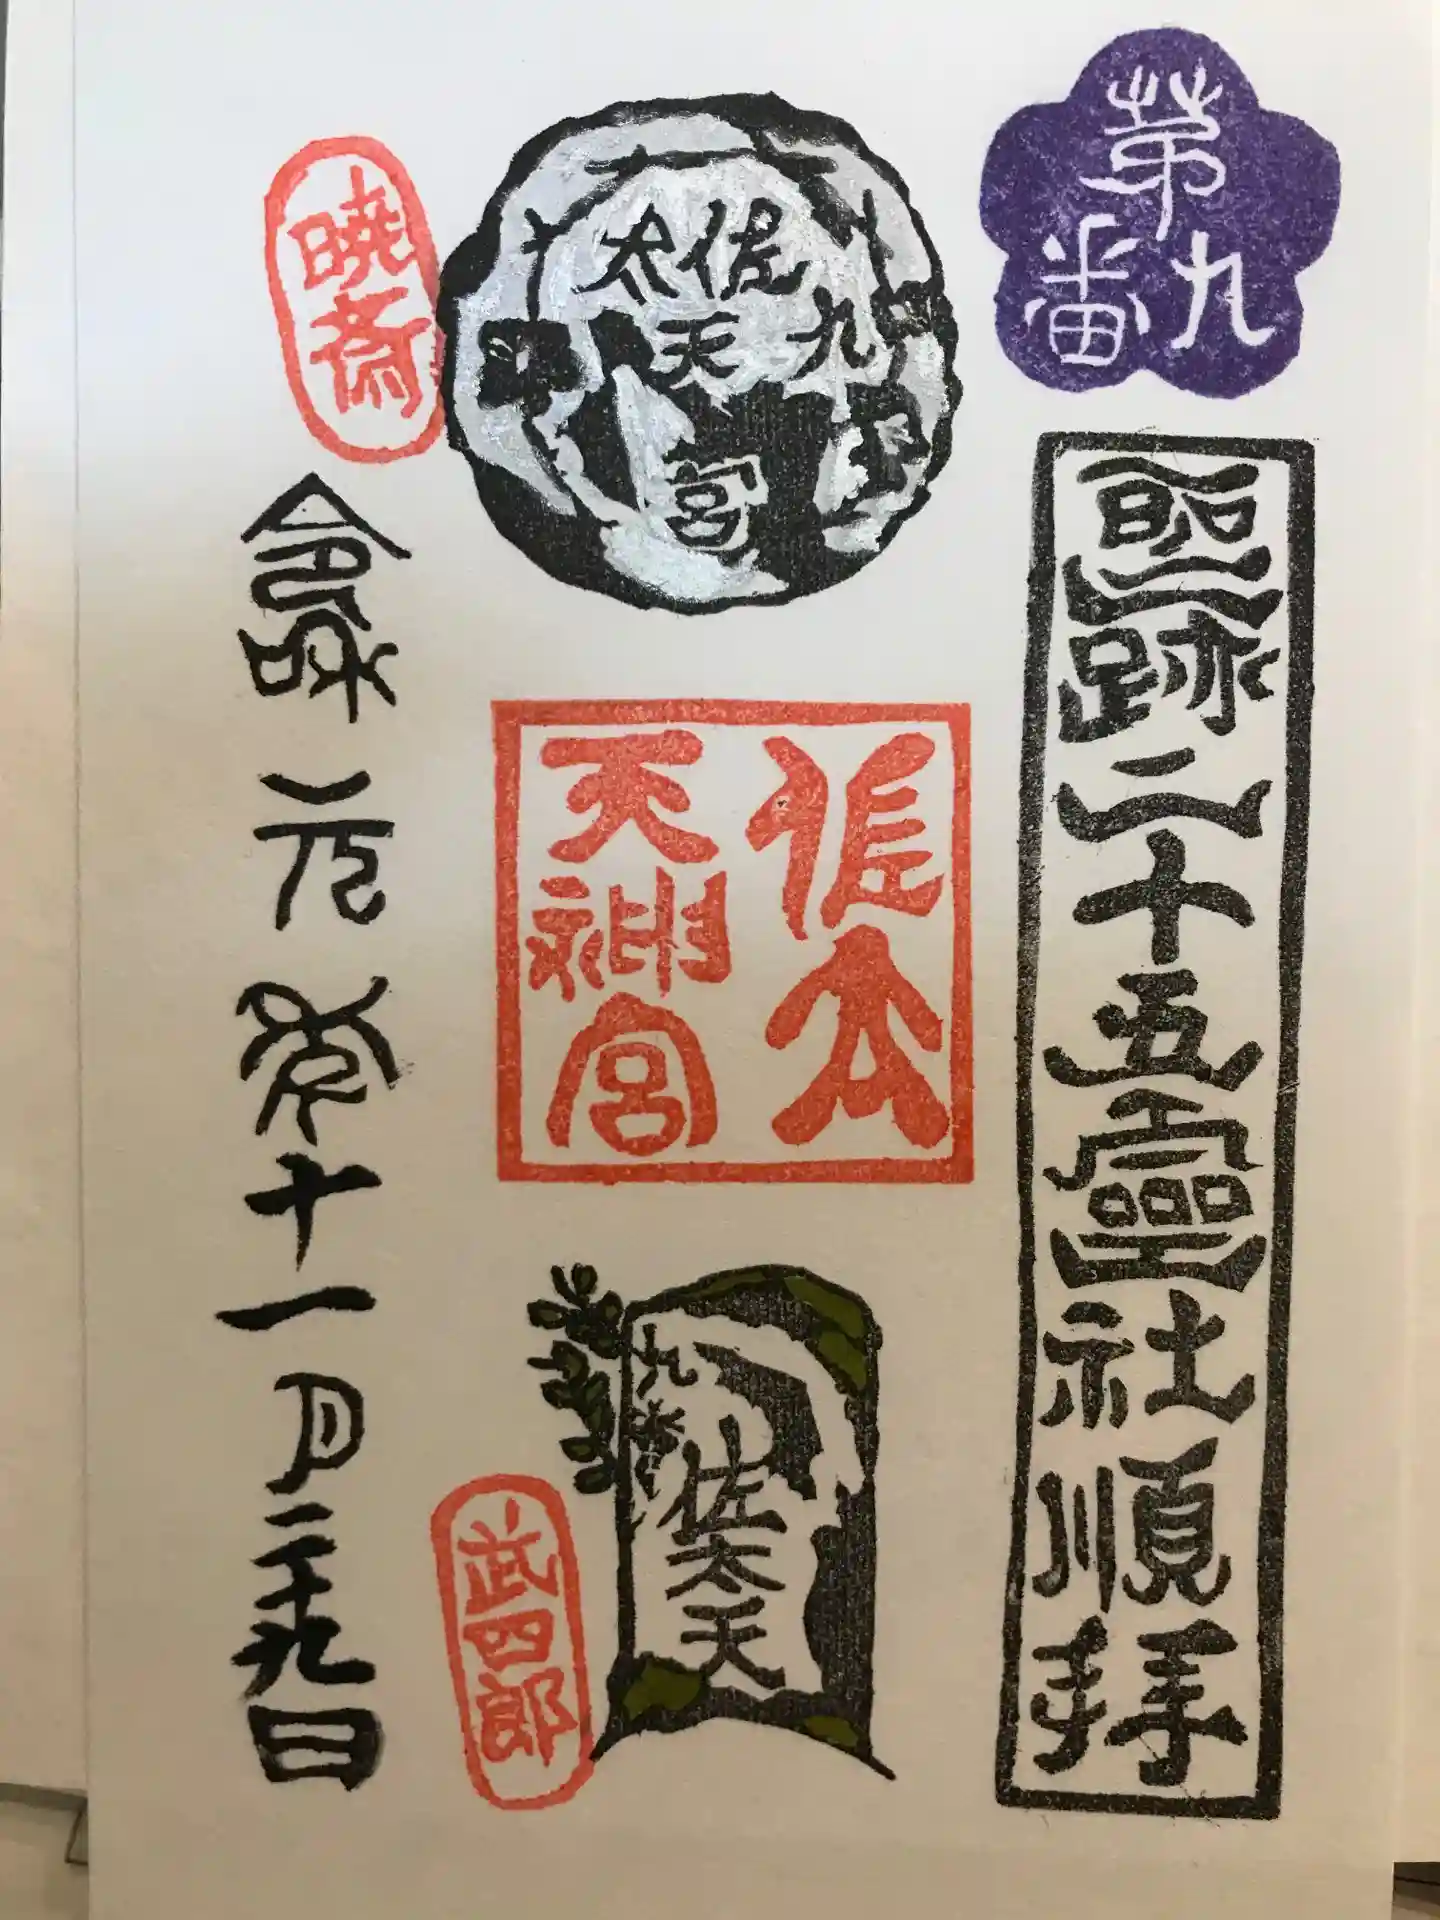 第九番
聖跡二十五霊社順拝
佐太
九
天
宮
佐太
天神宮
九
佐太天
暁斎
武四郎
令和元年十一月二十九日